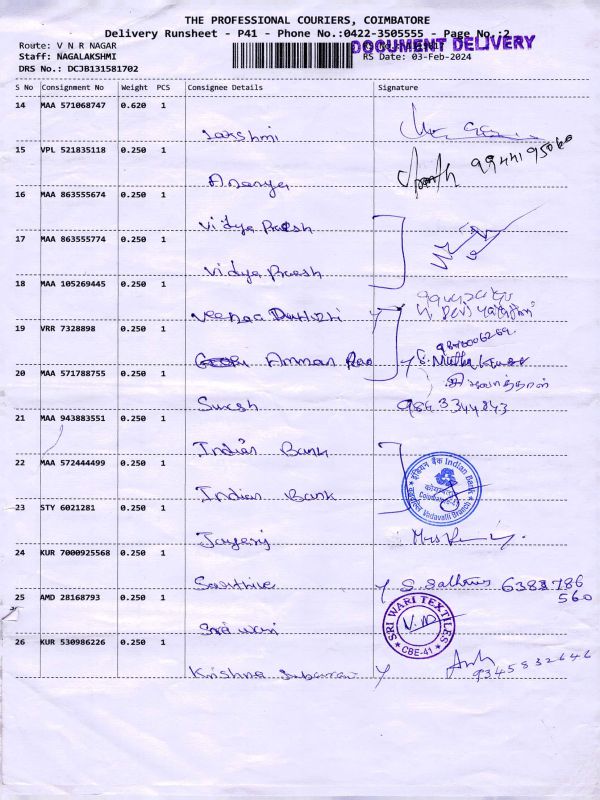 THE PROFESSIONAL COURIERS, COIMBATORE
Delivery Runsheet - P41 - Phone No.:0422-3505555 - Page No.:2
Route: V N R NAGAR
DOCUMENT DELIVERY
Staff: NAGALAKSHMI
RS Date: 03-Feb-2024
DRS No.: DCJB131581702
S No Consignment No Weight PCS Consignee Details Signature
14 MAA 571068747 0.620 1
Lakshmi
15 VPL 521835118 0.250 1
9944195060
Ananya
16 MAA 863555674 0.250 1
Vidya Prakesh
17 MAA 863555774 0.250 1
Vidya Prakesh
18 MAA 105269445 0.250 1
Veenaa
19 VRR 7328898 0.250 1
Amman
S. Muthu
20 MAA 571788755 0.250 1
Suresh 9843344843
21 MAA 943883551 0.250 1
Indian Bank
22 MAA 572444499 0.250 1
इंडियन बैंक Indian Bank
Vadavalli Branch
Indian Bank
23 STY 6021281 0.250 1
24 KUR 7000925568 0.250 1
6383786
560
25 AMD 28168793 0.250 1
SRI WARI TEXTILES
CBE-41
Sri wari
26 KUR 530986226 0.250 1
9345832646
Krishna